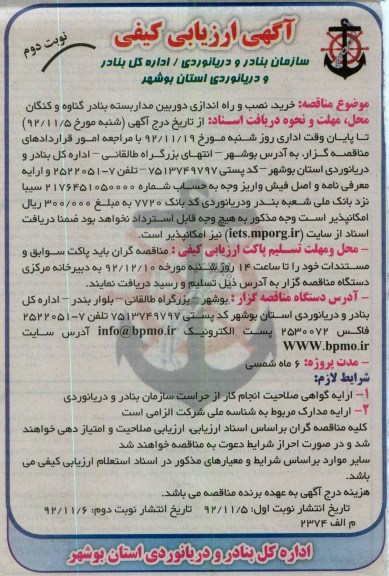 آگهی ارزیابی کیفی
نوبت دوم
سازمان بنادر و دریانوردی / اداره کل بنادر
و دریانوردی استان بوشهر
موضوع مناقصه: خرید، نصب و راه اندازی دوربین مداربسته بنادر گناوه و کنگان
محل، مهلت و نحوه دریافت اسناد: از تاریخ درج آگهی (شنبه مورخ ۹۲/۱۱/۵)
تا پایان وقت اداری روز شنبه مورخ ۹۲/۱۱/۱۹ با مراجعه امور قراردادهای
مناقصه گزار، به آدرس بوشهر – انتهای بزرگراه طالقانی – اداره کل بنادر و
دریانوردی استان بوشهر – کد پستی ۷۵۱۳۷۴۹۷۹۷ – تلفن ۷-۲۵۲۲۰۵۱ و ارایه
معرفی نامه و اصل فیش واریز وجه به حساب شماره ۲۱۷۶۴۵۱۰۵۰۰۰۰ سیبا
نزد بانک ملی شعبه بندر ودریانوردی کد بانک ۷۷۲۰ به مبلغ ۳۰۰/۰۰۰ ریال
امکانپذیر است وجه مذکور به هیچ وجه قابل استرداد نخواهد بود ضمنا دریافت
اسناد از سایت (iets.mporg.ir) نیز امکانپذیر است.
– محل ومهلت تسلیم پاکت ارزیابی کیفی : مناقصه گران باید پاکت سوابق و
مستندات خود را تا ساعت ۱۴ روز شنبه مورخه ۹۲/۱۲/۱۰ به دبیرخانه مرکزی
دستگاه مناقصه گزار به آدرس ذیل تسلیم و رسید دریافت نمایند.
– آدرس دستگاه مناقصه گزار : بوشهر – بزرگراه طالقانی – بلوار بندر – اداره کل
بنادر و دریانوردی استان بوشهر کد پستی ۷۵۱۳۷۴۹۷۹۷ تلفن ۷-۲۵۲۲۰۵۱
فاکس ۲۵۳۰۰۷۲ پست الکترونیک info@bpmo.ir آدرس سایت
WWW.bpmo.ir
– مدت پروژه: ۶ ماه شمسی
شرایط لازم:
۱- ارایه گواهی صلاحیت انجام کار از حراست سازمان بنادر و دریانوردی
۲- ارایه مدارک مربوط به شناسه ملی شرکت الزامی است
کلیه مناقصه گران براساس اسناد ارزیابی، ارزیابی صلاحیت و امتیاز دهی خواهند
شد و در صورت احراز شرایط دعوت به مناقصه خواهند شد
سایر موارد براساس شرایط و معیارهای مذکور در اسناد استعلام ارزیابی کیفی می
باشد.
هزینه درج آگهی به عهده برنده مناقصه می باشد.
تاریخ انتشار نوبت اول: ۹۲/۱۱/۵ تاریخ انتشار نوبت دوم: ۹۲/۱۱/۶
م الف ۲۳۷۴
اداره کل بنادر و دریانوردی استان بوشهر